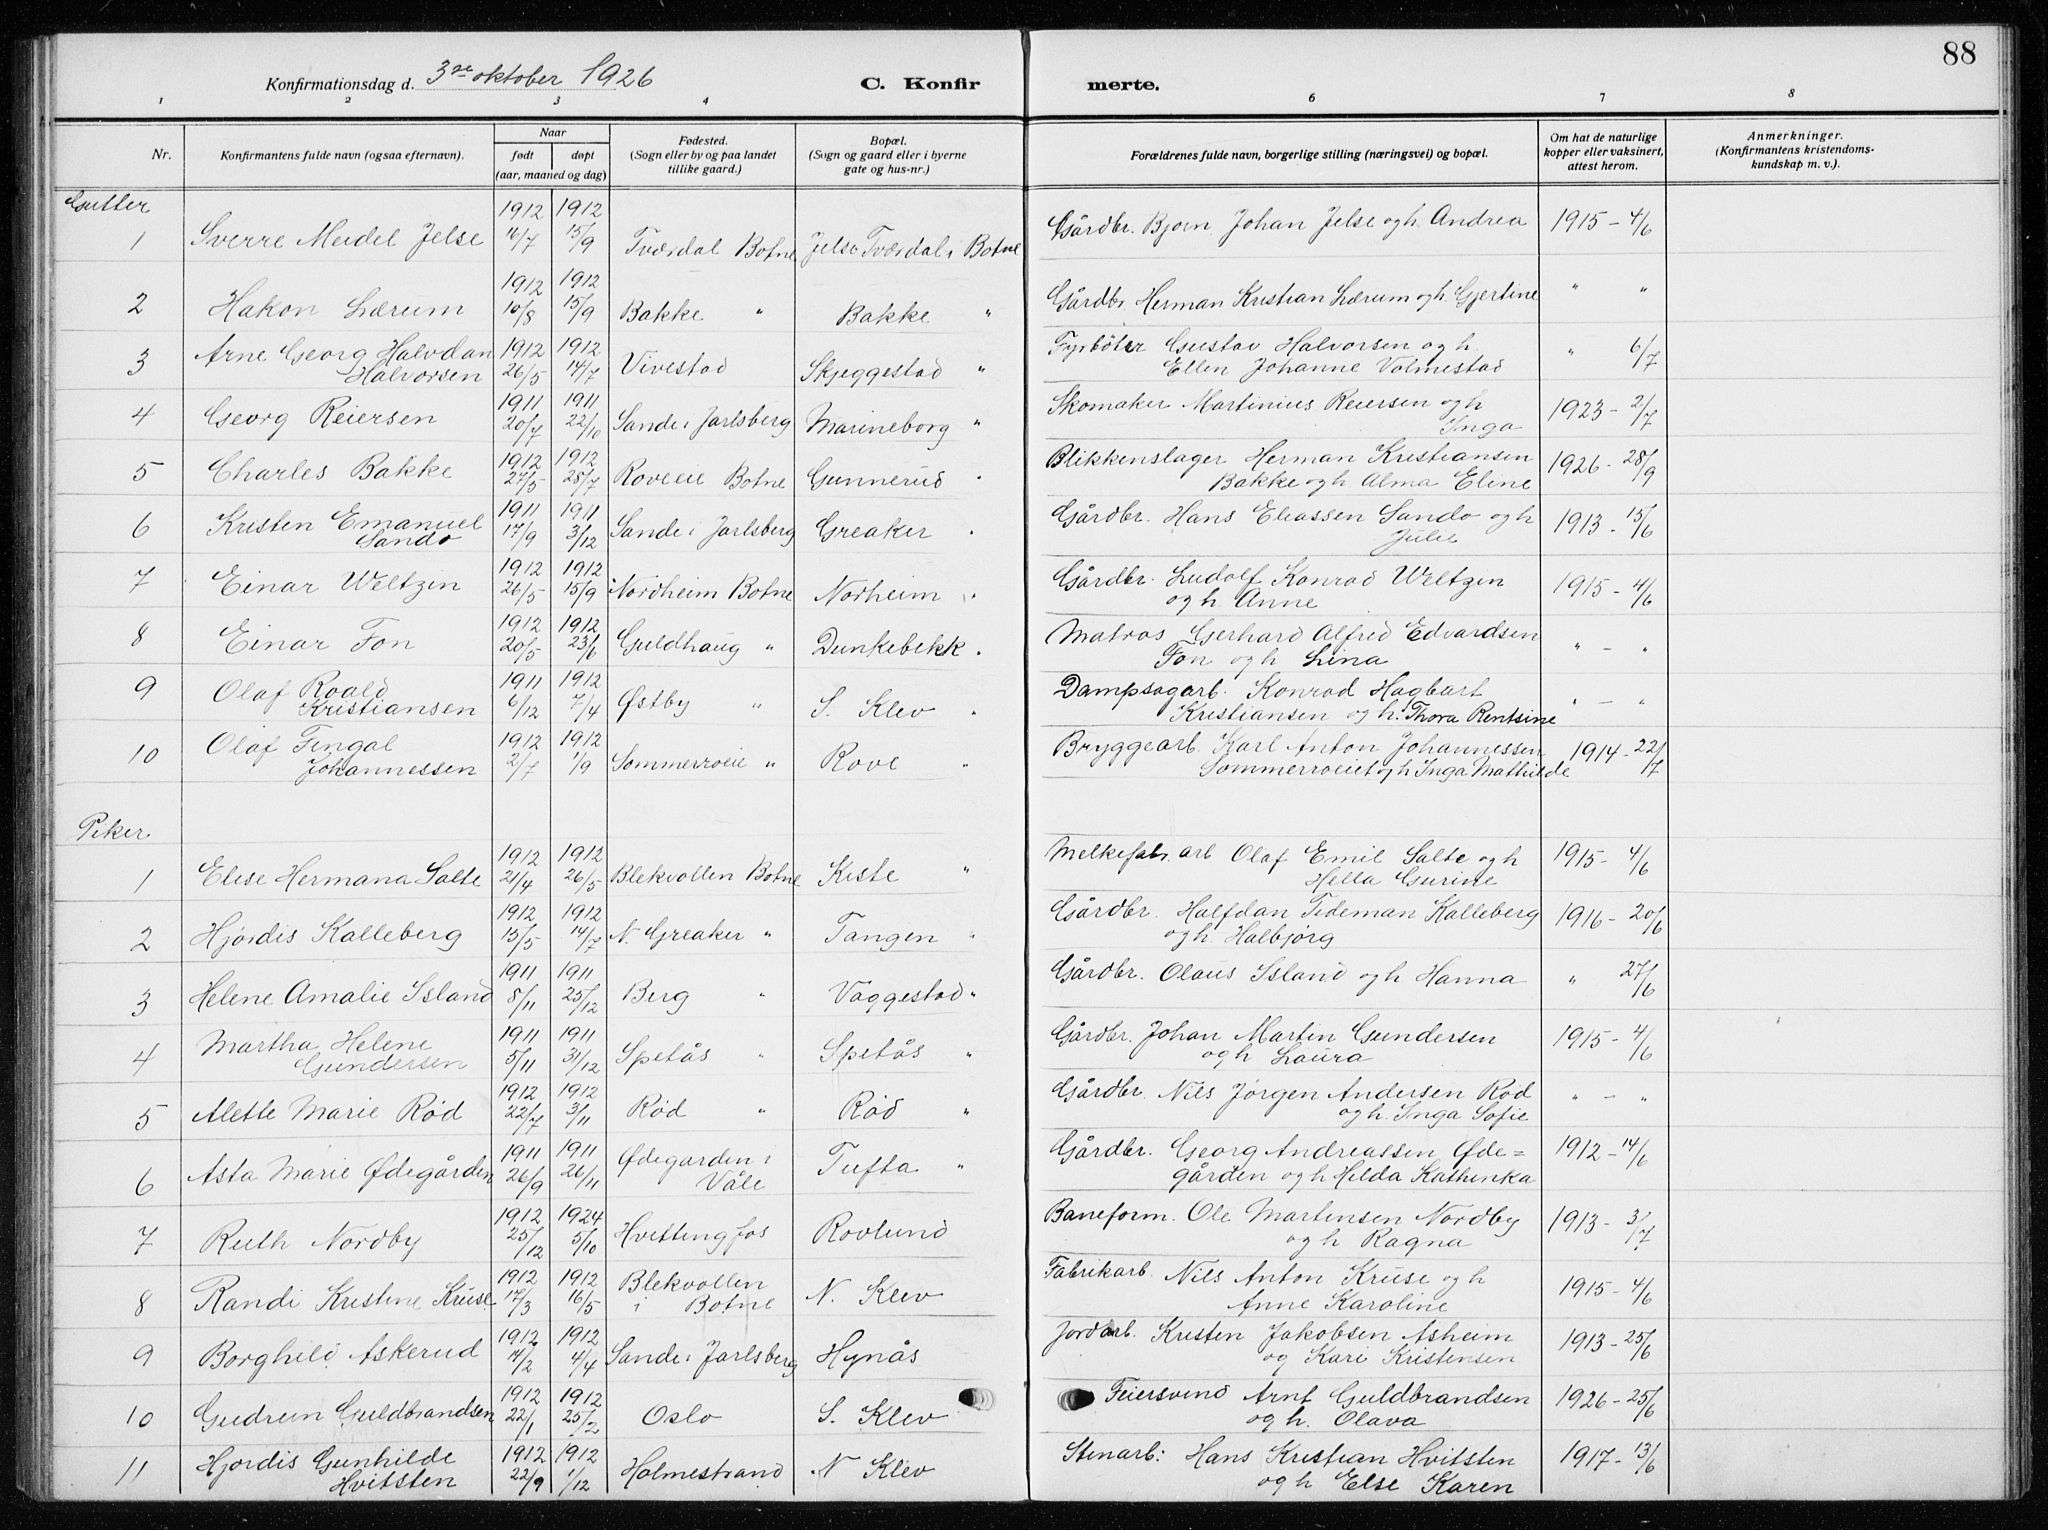 88
Konfirmationsdag d. 3die oktober 1926 C. Konfirmerte.
1 2 3 4 6 7 8
Nr. Konfirmantens fulde navn (ogsaa efternavn). Naar født døpt (aar, maaned og dag) Fødested. (Sogn eller by og paa landet tillike gaard.) Bopæl. (Sogn og gaard eller i byerne gate og hus-nr.) Forældrenes fulde navn, borgerlige stilling (næringsvei) og bopæl. Om hat de naturlige kopper eller vaksinert, attest herom. Anmerkninger. (Konfirmantens kristendoms- kundskap m. v.).
Gutter
1 Sverre Meidel Jelse 1912 16/7 1912 15/9 Tværdal Botne Jelse Tværdal i Botne Gårdbr. Bjørn Johan Jelse og h. Andrea 1915 - 4/6
2 Hakon Lærum 1912 10/8 1912 15/9 Bakke " Bakke " Gårdbr Herman Kristian Lærum og h. Gjertine " "
3 Arne Georg Halvdan Halvorsen 1912 26/5 1912 14/7 Vivestad Skjeggestad " Fyrbøter Gustav Halvorsen og h. Ellen Johanne Volmestad " 6/7
4 Georg Reiersen 1911 20/7 1911 22/10 Sande i Jarlsberg Marineborg " Skomaker Martinius Reiersen og h Inga 1923 - 2/7
5 Charles Bakke 1912 27/5 1912 28/7 Roveeie Botne Gunnerud " Blikkenslager Herman Kristiansen Bakke og h Alma Eline 1926 - 28/9
6 Kristen Emanuel Sando 1911 17/9 1911 3/12 Sande i Jarlsberg Greaker " Gårdbr. Hans Eliassen Sando og h Julie 1913 - 15/6
7 Einar Weltzin 1912 26/5 1912 15/9 Nordheim Botne Norheim " Gårdbr. Ludolf Konrad Weltzin og h Anne 1915 - 4/6
8 Einar Fon 1912 20/5 1912 23/6 Guldhaug " Dunkebekk " Matros Gerhard Alfred Edvardsen Fon og h Lina " - "
9 Olaf Roald Kristiansen 1911 6/12 1912 7/4 Østby " S. Klev " Dampsagarb. Konrad Hagbart Kristiansen og h. Thora Rentsine " - "
10 Olaf Fingal Johannessen 1912 2/7 1912 1/9 Sommerroeie " Rove " Bryggearb. Karl Anton Johannessen Sommerroeiet og h Inga Mathilde 1914 - 22/7
Piker
1 Elise Hermana Salte 1912 21/4 1912 26/5 Blekvollen Botne Kiste " Melkefabr. arb Olaf Emil Salte og h Hella Gurine 1915 - 4/6
2 Hjørdis Kalleberg 1912 15/5 1912 14/7 N. Greaker " Tangen " Gårdbr. Halfdan Tideman Kalleberg og h. Halbjørg 1916 - 20/6
3 Helene Amalie Island 1911 8/11 1911 25/12 Berg " Vaggestad " Gårdbr. Olaus Island og h Hanna " 27/6
4 Martha Helene Gundersen 1911 5/11 1911 31/12 Spetås " Spetås " Gårdbr. Johan Martin Gundersen og h Laura 1915 - 4/6
5 Alette Marie Rød 1912 22/7 1912 3/11 Rød " Rød " Gårdbr. Nils Jørgen Andersen Rød og h. Inga Sofie " - "
6 Asta Marie Ødegården 1911 26/9 1911 26/11 Ødegarden i Våle Tufta " Gårdbr. Georg Andreassen Øde= gården og h Hilda Kathinka 1912 - 14/6
7 Ruth Nordby 1912 25/12 1924 5/10 Hvittingfos Rovlund Baneform. Ole Martinsen Nordby og h Ragna 1913 - 3/7
8 Randi Kristine Kruse 1912 17/3 1912 16/5 Blekvollen i Botne N. Klev Fabrikarb. Nils Anton Kruse og h Anne Karoline 1915 - 4/6
9 Borghild Askerud 1912 14/2 1912 4/4 Sande i Jarlsberg Hynås Jordarb. Kristen Jakobsen Asheim og Kari Kristensen 1913 - 25/6
10 Gudrun Guldbrandsen 1912 22/1 1912 25/2 Oslo S. Klev Feiersvend Arnt Guldbrandsen og h. Olava 1926 - 25/6
11 Hjørdis Gunhilde Hvitsten 1912 22/9 1912 1/12 Holmestrand N Klev Stenarb: Hans Kristian Hvitsten og h Else Karen 1917 - 13/6